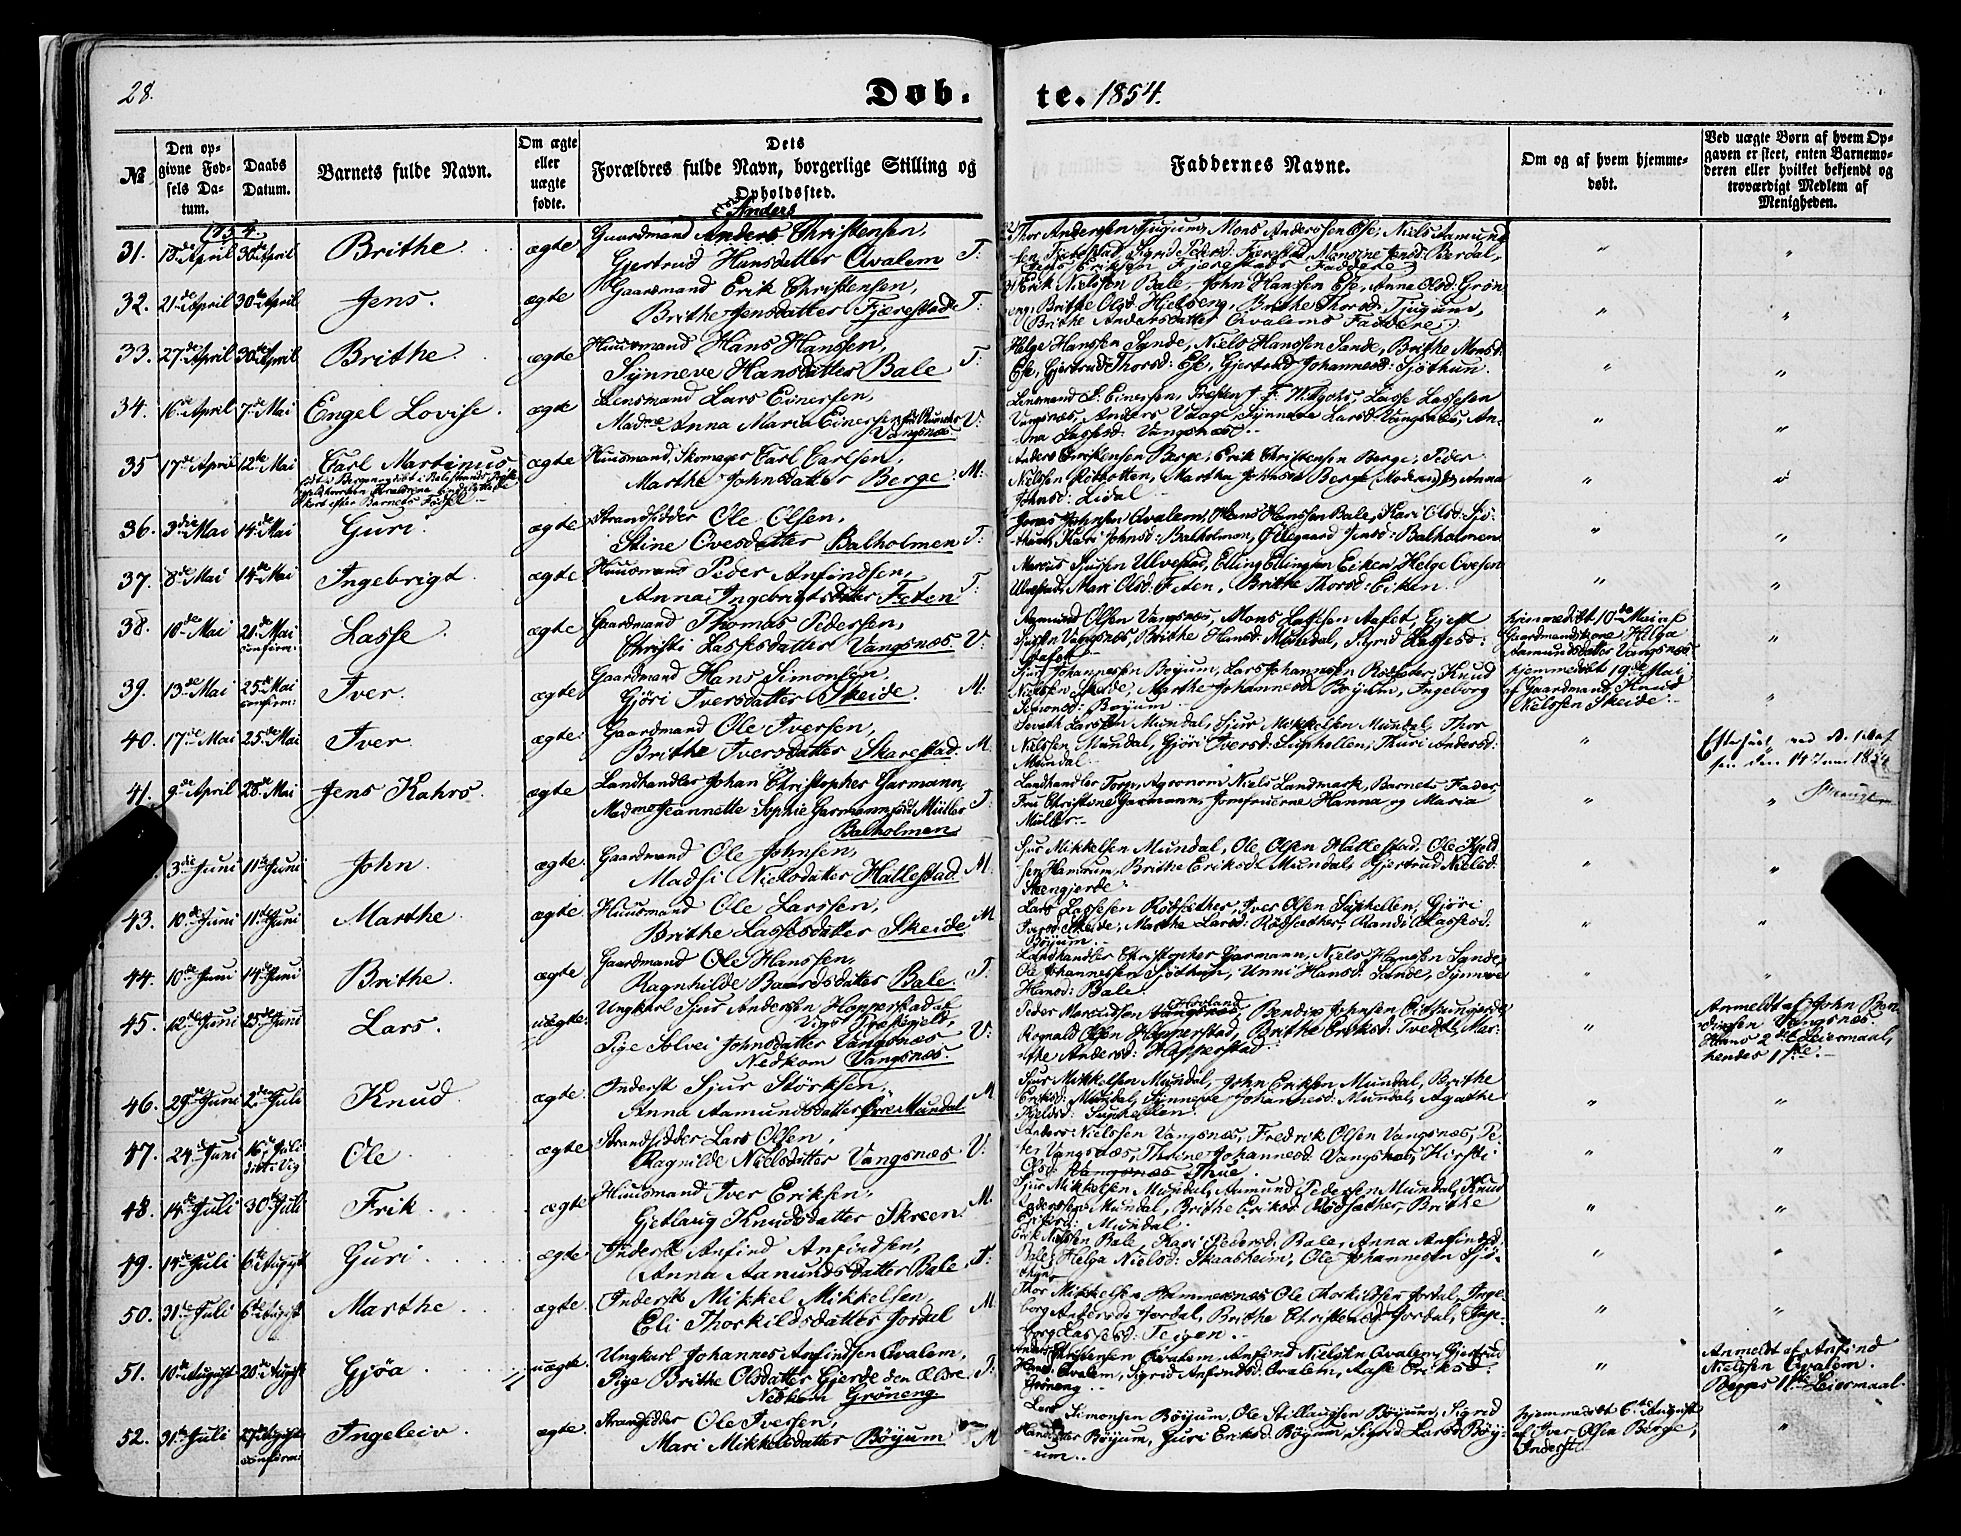 28.
Døb-
te. 1854.
№
Den op-
givne Fød-
sels Da-
tum.
Daabs
Datum.
Barnets fulde Navn.
Om ægte
eller
uægte
fødte.
Dets
Forældres fulde Navn, borgerlige Stilling og
Opholdssted.
Faddernes Navne.
Om og af hvem hjemme-
døbt.
Ved uægte Børn af hvem Op-
gaven er skeet, enten Barnemo-
deren eller hvilket bekjendt og
troværdigt Medlem af
Menigheden.
1854.
31. 15de April 30de April Brithe. ægte Gaardmand Anders Christensen,
Gjertrud Hansdatter Qvalem T:
Thor Andersen Tjugum, Mons Anderssen Ese, Niels Aamund-
sen Fjærestad, Sigrid Peders: Fjærestad,
32. 21de April 30de April Jens. ægte Gaardmand Erik Christensen,
Brithe Jensdatter Fjærestad T:
Erik Nielssen Bale, John Hanssen Ese, Anna Olsd: Grøn-
eng, Brithe Olsd: Hjelseng, Brithe Thorsd: Tjugum,
Brithe Andersdatter Qvalems Faddere.
33. 27de April 30de April Brithe. ægte Huusmand Hans Hanssen,
Synneve Hansdatter Bale T:
Helge Hanssen Sande, Niels Hanssen Sande, Brithe Monsd:
Ese, Gjertrud Thorsd: Ese, Gjertrud Johannesd: Sjøthun.
34. 16de April 7de Mai Engel Lovise. ægte Lensmand Lars Einersen,
Madme Anna Maria Einersen
Vangsnæs V:
Lensmand S. Einersen, Præsten J. F. Lasse Lassesen
Vangsnæs, Anders Synneva Larsd: Vangsnæs, An-
na Lassesd: Vangsnæs.
35 17de April 12te Mai Carl Martinus ægte Huusmand, Skomager Carl Carlsen,
Marthe Johnsdatter Berge. M:
Anders Eriksen Berge, Erik Christensen Berge, Peder
Nielssen Marthe Johnsd: Berge (Moderen) og Anna
Johnsd: Lidal
36. 3die Mai 14de Mai Guri. ægte Strandsidder Ole Olsen,
Stine Ovesdatter Balholmen T:
Jonas Johnsen Qvalem, Hans Hanssen Bale, Kari Olsd: Sjø-
thun, Kari Johnsd: Balholmen, Øllegaard Jensd: Balholmen
37. 8de Mai 14de Mai Ingebrigt. ægte Huusmand Peder Anfindsen,
Anna Ingebrigtsdatter Feten T:
Marcus Sjursen Ulvestad, Elling Ellingsen Eiken, Helge Ovesen
Ulvestad, Mari Olsd: Feten, Brithe Thorsd: Eiken.
38. 10de Mai 21de Mai
confirm. Lasse. ægte Gaardmand Thomas Pedersen,
Christi Lassesdatter Vangsnæs V:
Aamund Olsen Vangsnæs, Mons Lassesen Aafet, Gjest
Vangsnæs, Brithe Hansd: Mundal, Sigrid Lassesd:
hjemmedøbt 10de Mai af
Gaardmandskone Helga
Aamundsdatter Vangsnæs
39. 13de Mai 25de Mai
confirm: Iver. ægte Gaardmand Hans Simonsen,
Gjøri Iversdatter Skeide. M:
Sjur Johannessen Bøyum, Lars Johannesen Rødseter, Knud
Nielssen Skeide, Marthe Johannesd: Bøyum, Ingeborg
Simonsd: Bøyum.
hjemmedøbt 19de Mai
af Gaardmand Knut
Nielssen Skeide.
40. 17de Mai 25de Mai Iver. ægte. Gaardmand Ole Iversen,
Brithe Iversdatter Skarestad. M.
Larssen Mundal, Sjur Mikkelsen Mundal, Thor
Nielssen Mundal, Gjøri Iversd: Suphellen, Thuri Andersd:
Mundal
41. 9de April 28de Mai Jens Kahrs. ægte Landhandler Johan Christopher Garmann,
Madme Jeannette Sophie Garmann, født Müller
Balholmen T:
Landhandler Agronom Niels Landmark, Barnets Fader
Fru Christine Garmann, Jomfruerne Hanna og Maria
Müller.
3die Juni 11te Juni John. ægte. Gaardmand Ole Johnsen,
Madsi Nielsdatter Hallestad. M
Sjur Mikkelsen Mundal, Ole Olsen Hallestad, Ole Kjeld-
sen Hamrum, Brithe Eriksd: Mundal, Gjertrud Nielsd:
Stengjerde.
43. 10de Juni 11te Juni Marthe. ægte. Huusmand Ole Larssen,
Brithe Lassesdatter Skeide M
Lars Lassesen Rødsæther, Iver Olsen Suphellen, Gjøri
Iversd: Skeide, Marthe Larsd: Rødsæther, Randi Lassesd:
Bøyum.
44. 10de Juni 14de Juni Brithe. ægte Gaardmand Ole Hanssen,
Ragnhilde Baardsdatter Bale. T.
Landhandler Christopher Garmann, Niels Hansen Sande,
Ole Johannesen Sjøthun, Unni Hansd: Sande, Synneve
Hansd: Bale
45. 12te Juni 25de Juni Lars. uægte: Ungkarl Sjur Andersen Hopperstad af
Vigs Præstegjeld,
Pige Solvei Johnsdatter Vangsnæs
Nedkom Vangsnæs. V:
Hovland
Peder Vangsnæs, Bendix Johnsen
Rognald Olsen Hopperstad, Brithe Eriksd: Tvedt, Mar-
the Andersd: Hopperstad.
Anmeldt af John Ben-
dixsen Vangsnæs.
Hans 2det Leiermaal,
hendes 1ste.
46. 29de Juni 2den Juli Knud ægte. Inderst Sjur Størksen,
Anna Aamundsdatter Øvre Mundal M
Sjur Mikkelsen Mundal, John Eriksen Mundal, Brithe
Eriksd: Mundal, Synneve Johannesd: Mundal, Agathe
Kjeldsd: Suphellen.
47. 24de Juni 16de Juli
døbt i Vig Ole ægte Strandsidder Lars Olsen,
Ragnilde Nielsdatter Vangsnæs V:
Anders Nielssen Vangsnæs, Fredrik Olsen Vangsnæs, Pe-
ter Vangsnæs, Thrine Johannesd: Vangsnæs, Kirsti
Olsd: Vangsnæs Thue.
48. 14de Juli 30de Juli Erik. ægte Huusmand Iver Eriksen,
Gjetlaug Knudsdatter Skreen. M.
Sjur Mikkelsen Mundal, Aamund Pedersen Mundal, Knud
Anderssen Mundal, Brithe Eriksd: Rødsæther, Brithe
Eriksd: Mundal.
49. 14de Juli 6te August Guri. ægte. Inderst Anfind Anfindsen,
Anna Aamundsdatter Bale. T:
Erik Nielssen Bale, Kari Pedersd: Bale, Anna Anfindsd:
Bale, Helga Nielsd: Skaasheim, Ole Johannesen Sjø-
thun
50. 31te Juli 6te August Marthe. ægte. Inderst Mikkel Mikkelsen,
Eli Thorkildsdatter Jordal M.
Thor Mikkelsen Ole Thorkildsen Jordal, Inge-
borg Andersd: Jordal, Brithe Christensd: Jordal, Inge-
borg Lassesd: Teigen.
51. 10de August 20de August Gjøa. uægte. Ungkarl Johannes Anfindsen Qvalem,
Pige Brithe Olsdatter Gjerde den Ældre
Nedkom Grøneng T:
Anders Christensen Qvalem, Anfind Nielssen Qvalem, Gjertrud
Hansd: Qvalem, Sigrid Anfindsd: Qvalem, Aase Eriksd:
Grøneng.
Anmeldt af Anfind
Nielssen Qvalem.
Begges 1ste Leiermaal.
52. 31te Juli 27de August
confirm: Ingeleiv. ægte. Strandsidder Ole Iversen,
Mari Mikkelsdatter Bøyum M
Lars Simonsen Bøyum, Ole Stillaugsen Bøyum, Sigrid
Hansdatter Bøyum, Guri Eriksd: Bøyum, Sigrid Larsd: Bøy-
um.
hjemmedøbt 6te August
af Iver Olsen Berge,
Inderst.